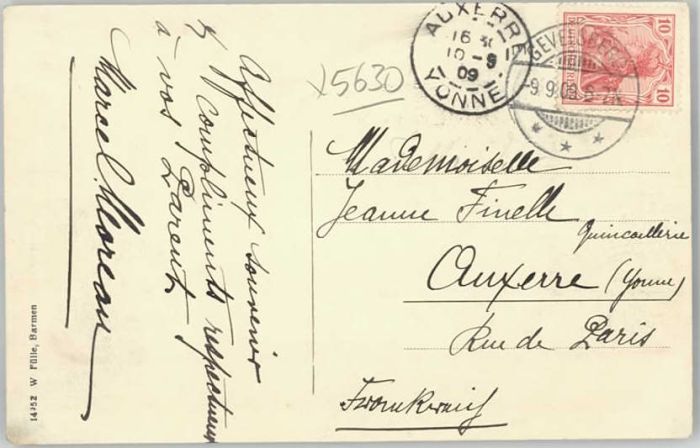 Affectueux souvenir
& compliments respectueux
à vos Parents
Marcel Moreau
14352 W Fülle, Barmen
x5630
AUXERRE
16 30
10 - 9
09
YONNE
GEVELSBERG
-9.9.09.6-7N
10
10
Mademoiselle
Jeanne Finelle
Quincaillerie
Auxerre (Yonne)
Rue de Paris
Frankreich